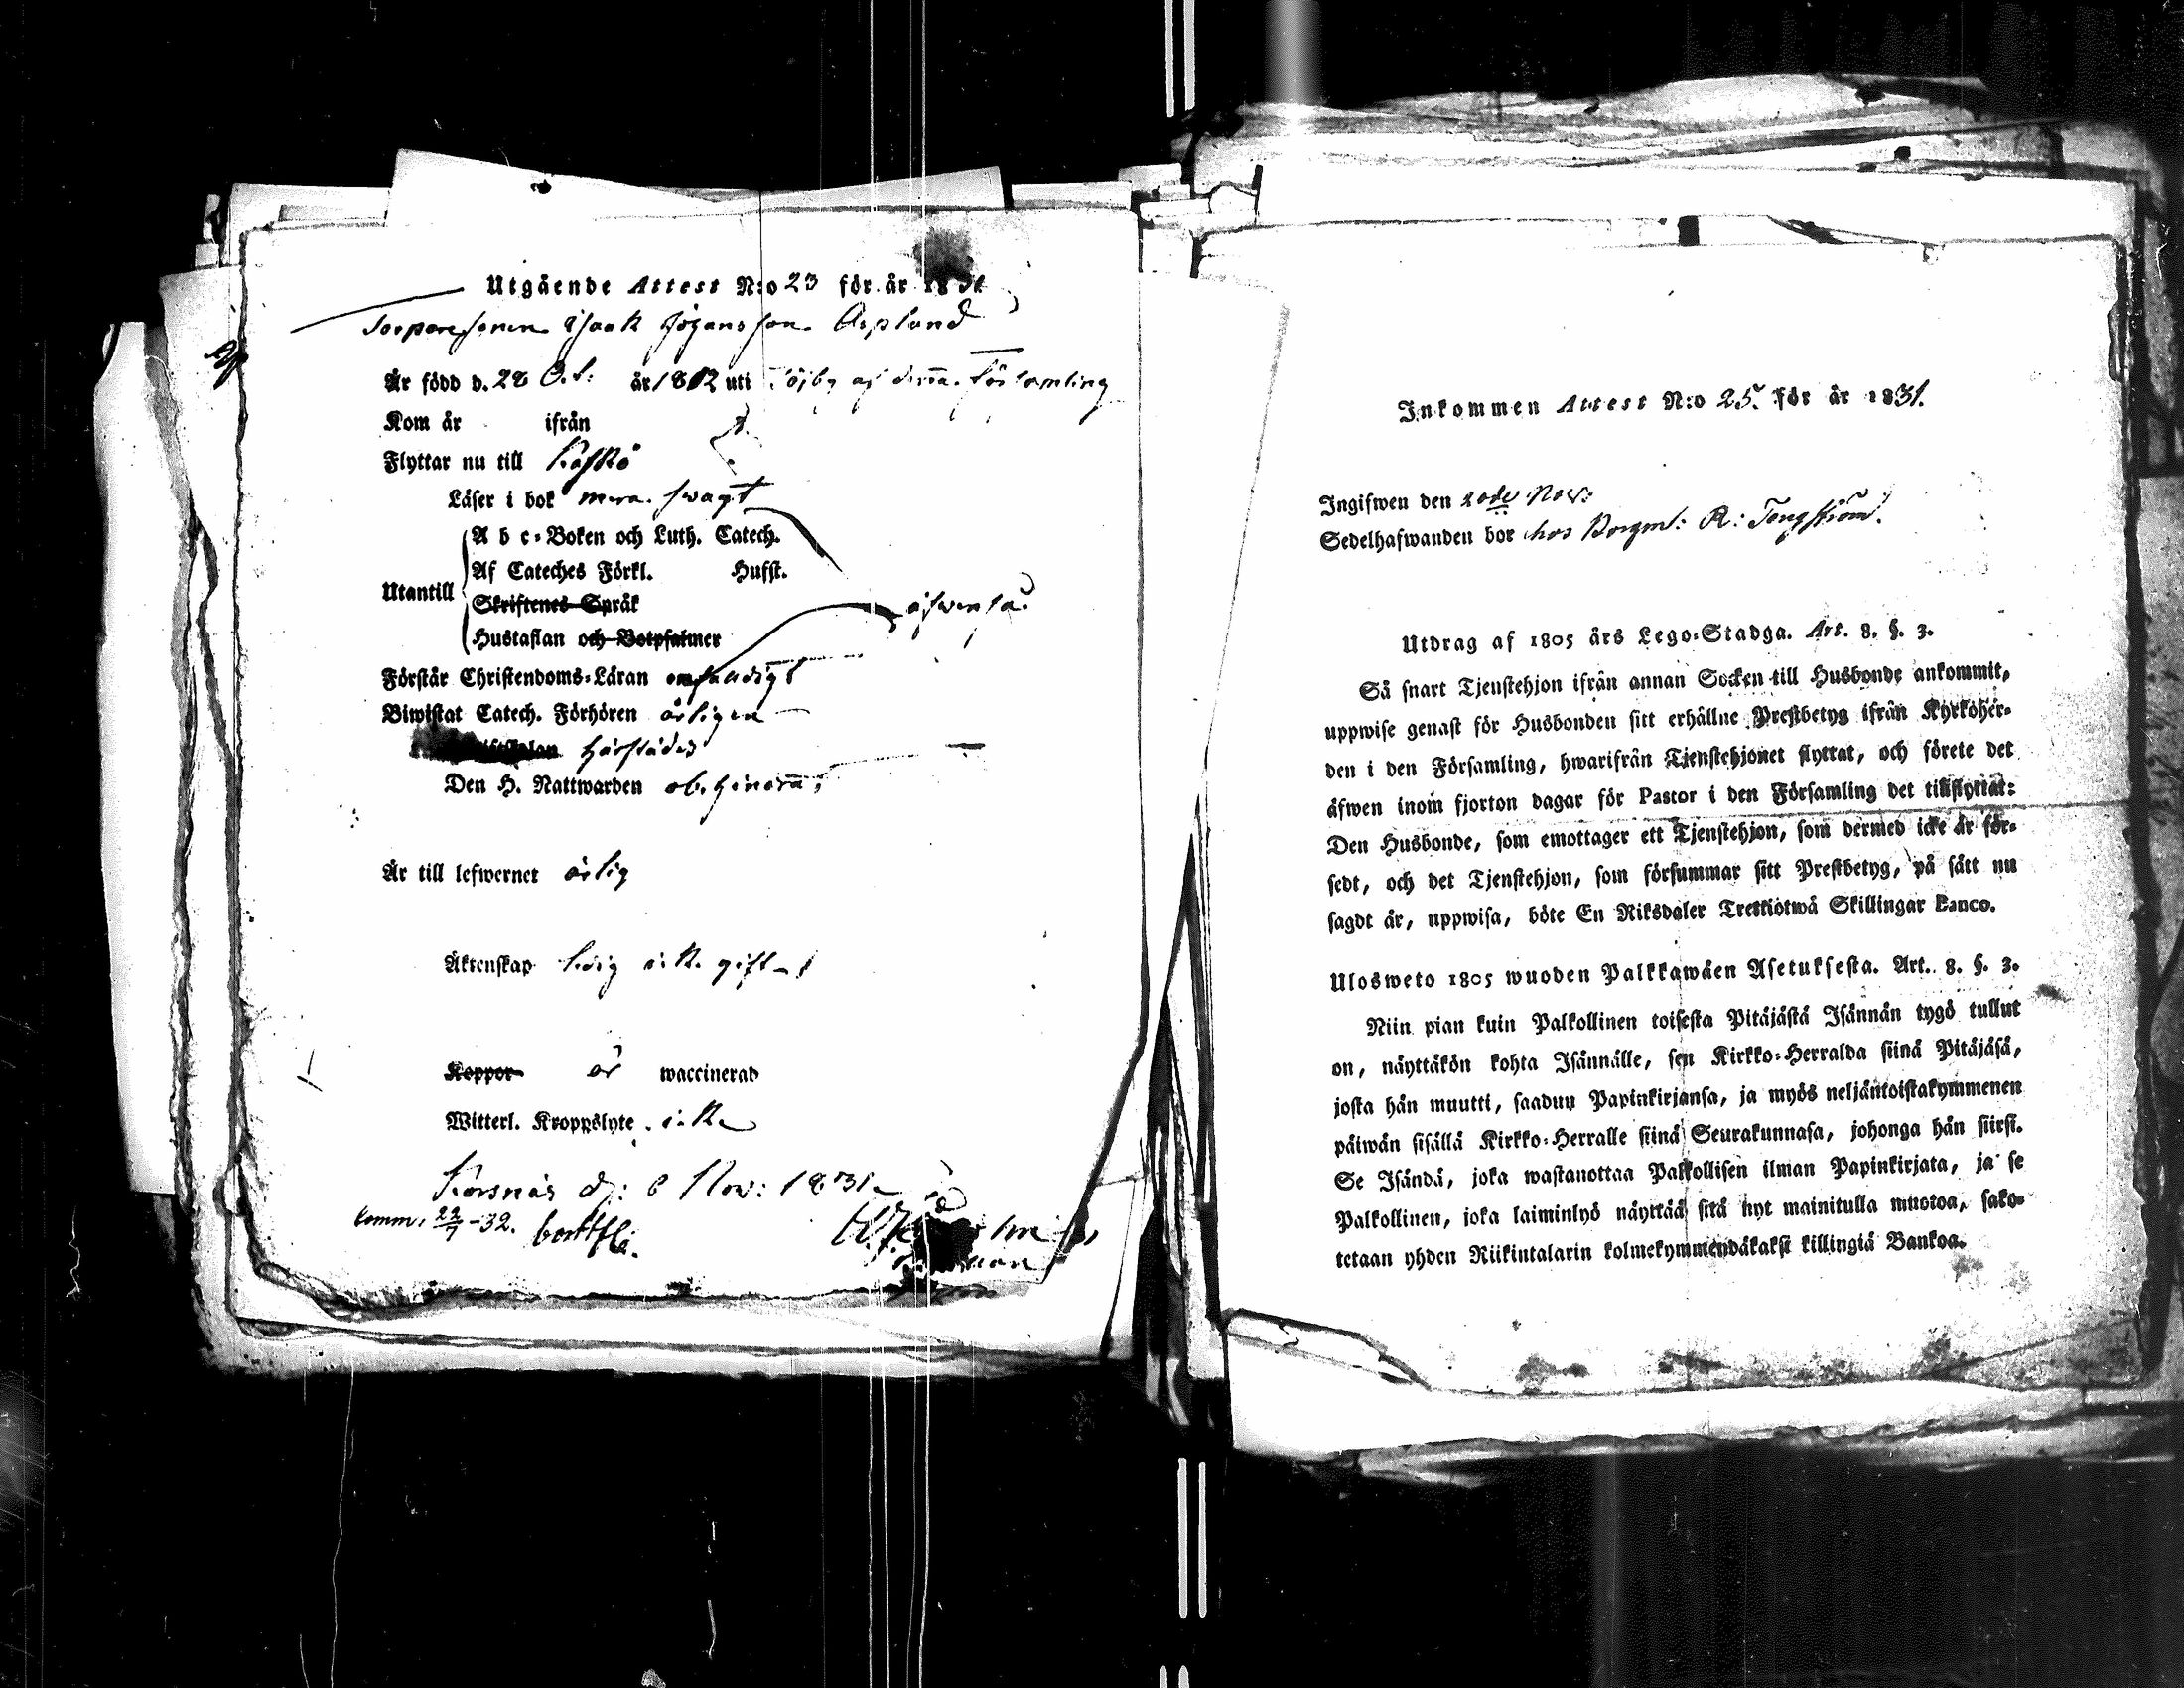 Utgående Attest N:o 23 för år 1831
Torparesonen Isaak Johansson Asplund
År född d. 28 Oct: år 1812 uti Töjby af denna församling
Kom år ifrån
Flyttar nu till Kaskö
Läser i bok svagt
A b c-Boken och Luth. Catech.
Af Cateches Förkl. Husft.
Utantill
Skriftenes Språk
äfven så
Hustaflan och Botpsalmer
Förstår Christendoms-Läran
Biwistat Catech. Förhören årligen
Den H. Nattwarden
År till lefwernet ärlig
Äktenskap ledig
Koppor är waccinerad
Witterl. Kroppslyte icke
Korsnäs d: 6 Nov: 1831
-32.
Inkommen Attest N:o 25. för år 1831.
Ingifwen den 20de Nov:
Sedelhafwanden bor hos Borgm: R: Tengström.
Utdrag af 1805 års Lego-Stadga. Art. 8. §. 3.
Så snart Tjenstehjon ifrån annan Socken till Husbonde ankommit,
uppwise genast för Husbonden sitt erhållne Prestbetyg ifrån Kyrkoher-
den i den Församling, hwarifrån Tjenstehjonet flyttat, och förete det
äfwen inom fjorton dagar för Pastor i den Församling det tillflyttat:
Den Husbonde, som emottager ett Tjenstehjon, som dermed icke är för-
sedt, och det Tjenstehjon, som försummar sitt Prestbetyg, på sätt nu
sagdt är, uppwisa, böte En Riksdaler Trettiotwå Skillingar Banco.
Ulosweto 1805 wuoden Palkkawäen Asetuksesta. Art. 8. §. 3.
Niin pian kuin Palkollinen toisesta Pitäjästä Isännän tygö tullut
on, näyttäkön kohta Isännälle, sen Kirkko-Herralda siinä Pitäjäsä,
josta hän muutti, saadun Papinkirjansa, ja myös neljäntoistakymmenen
päiwän sisällä Kirkko-Herralle siinä Seurakunnasa, johonga hän siirsi.
Se Isändä, joka wastanottaa Palkollisen ilman Papinkirjata, ja se
Palkollinen, joka laiminlyö näyttää sitä nyt mainitulla muotoa, sako-
tetaan yhden Riikintalarin kolmekymmendäkaksi killingiä Bankoa.